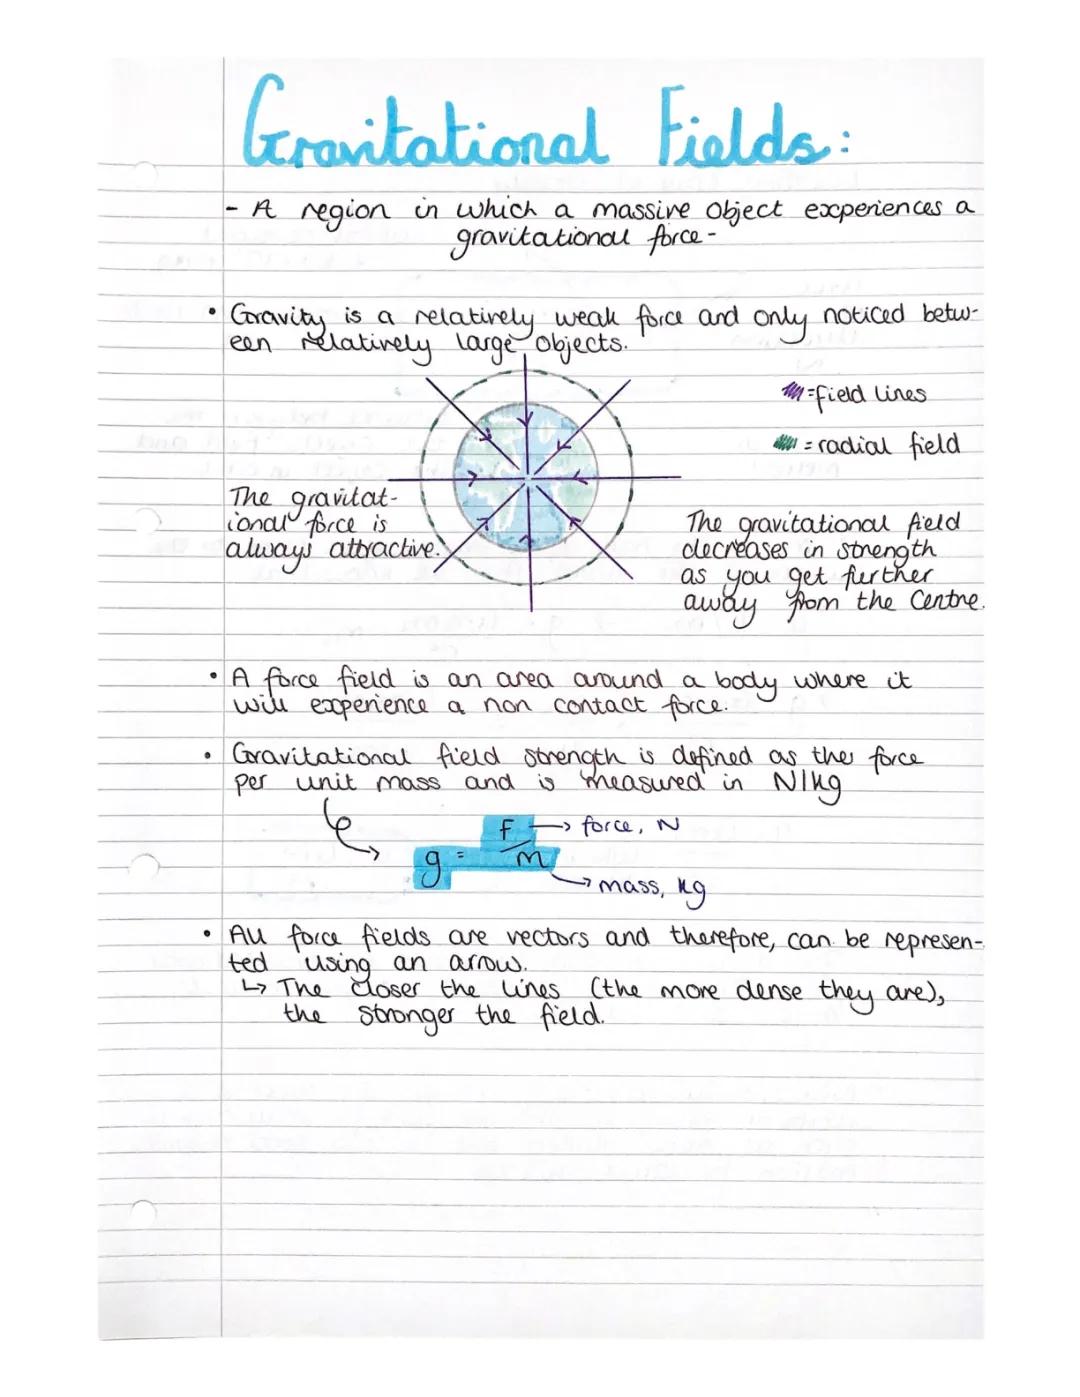 Gravitational Fields:
- A region in which a massive object experiences a
gravitational force -
• Gravity is a relatively weak force and only noticed betw-
een relatively large objects.
= field lines
= radial field
The gravitat-
ional force is
always attractive.
The gravitational field
decreases in strength
as you get further
away from the Centre.
• A force field is an area around a body where it
will experience a non contact force.
• Gravitational field strength is defined as the force
per unit mass and is measured in N/kg
g = F/m
→ force, N
→ mass, kg
• All force fields are vectors and therefore, can be represen-
ted using an arrow.
↳ The closer the lines (the more dense they are),
the stronger the field.